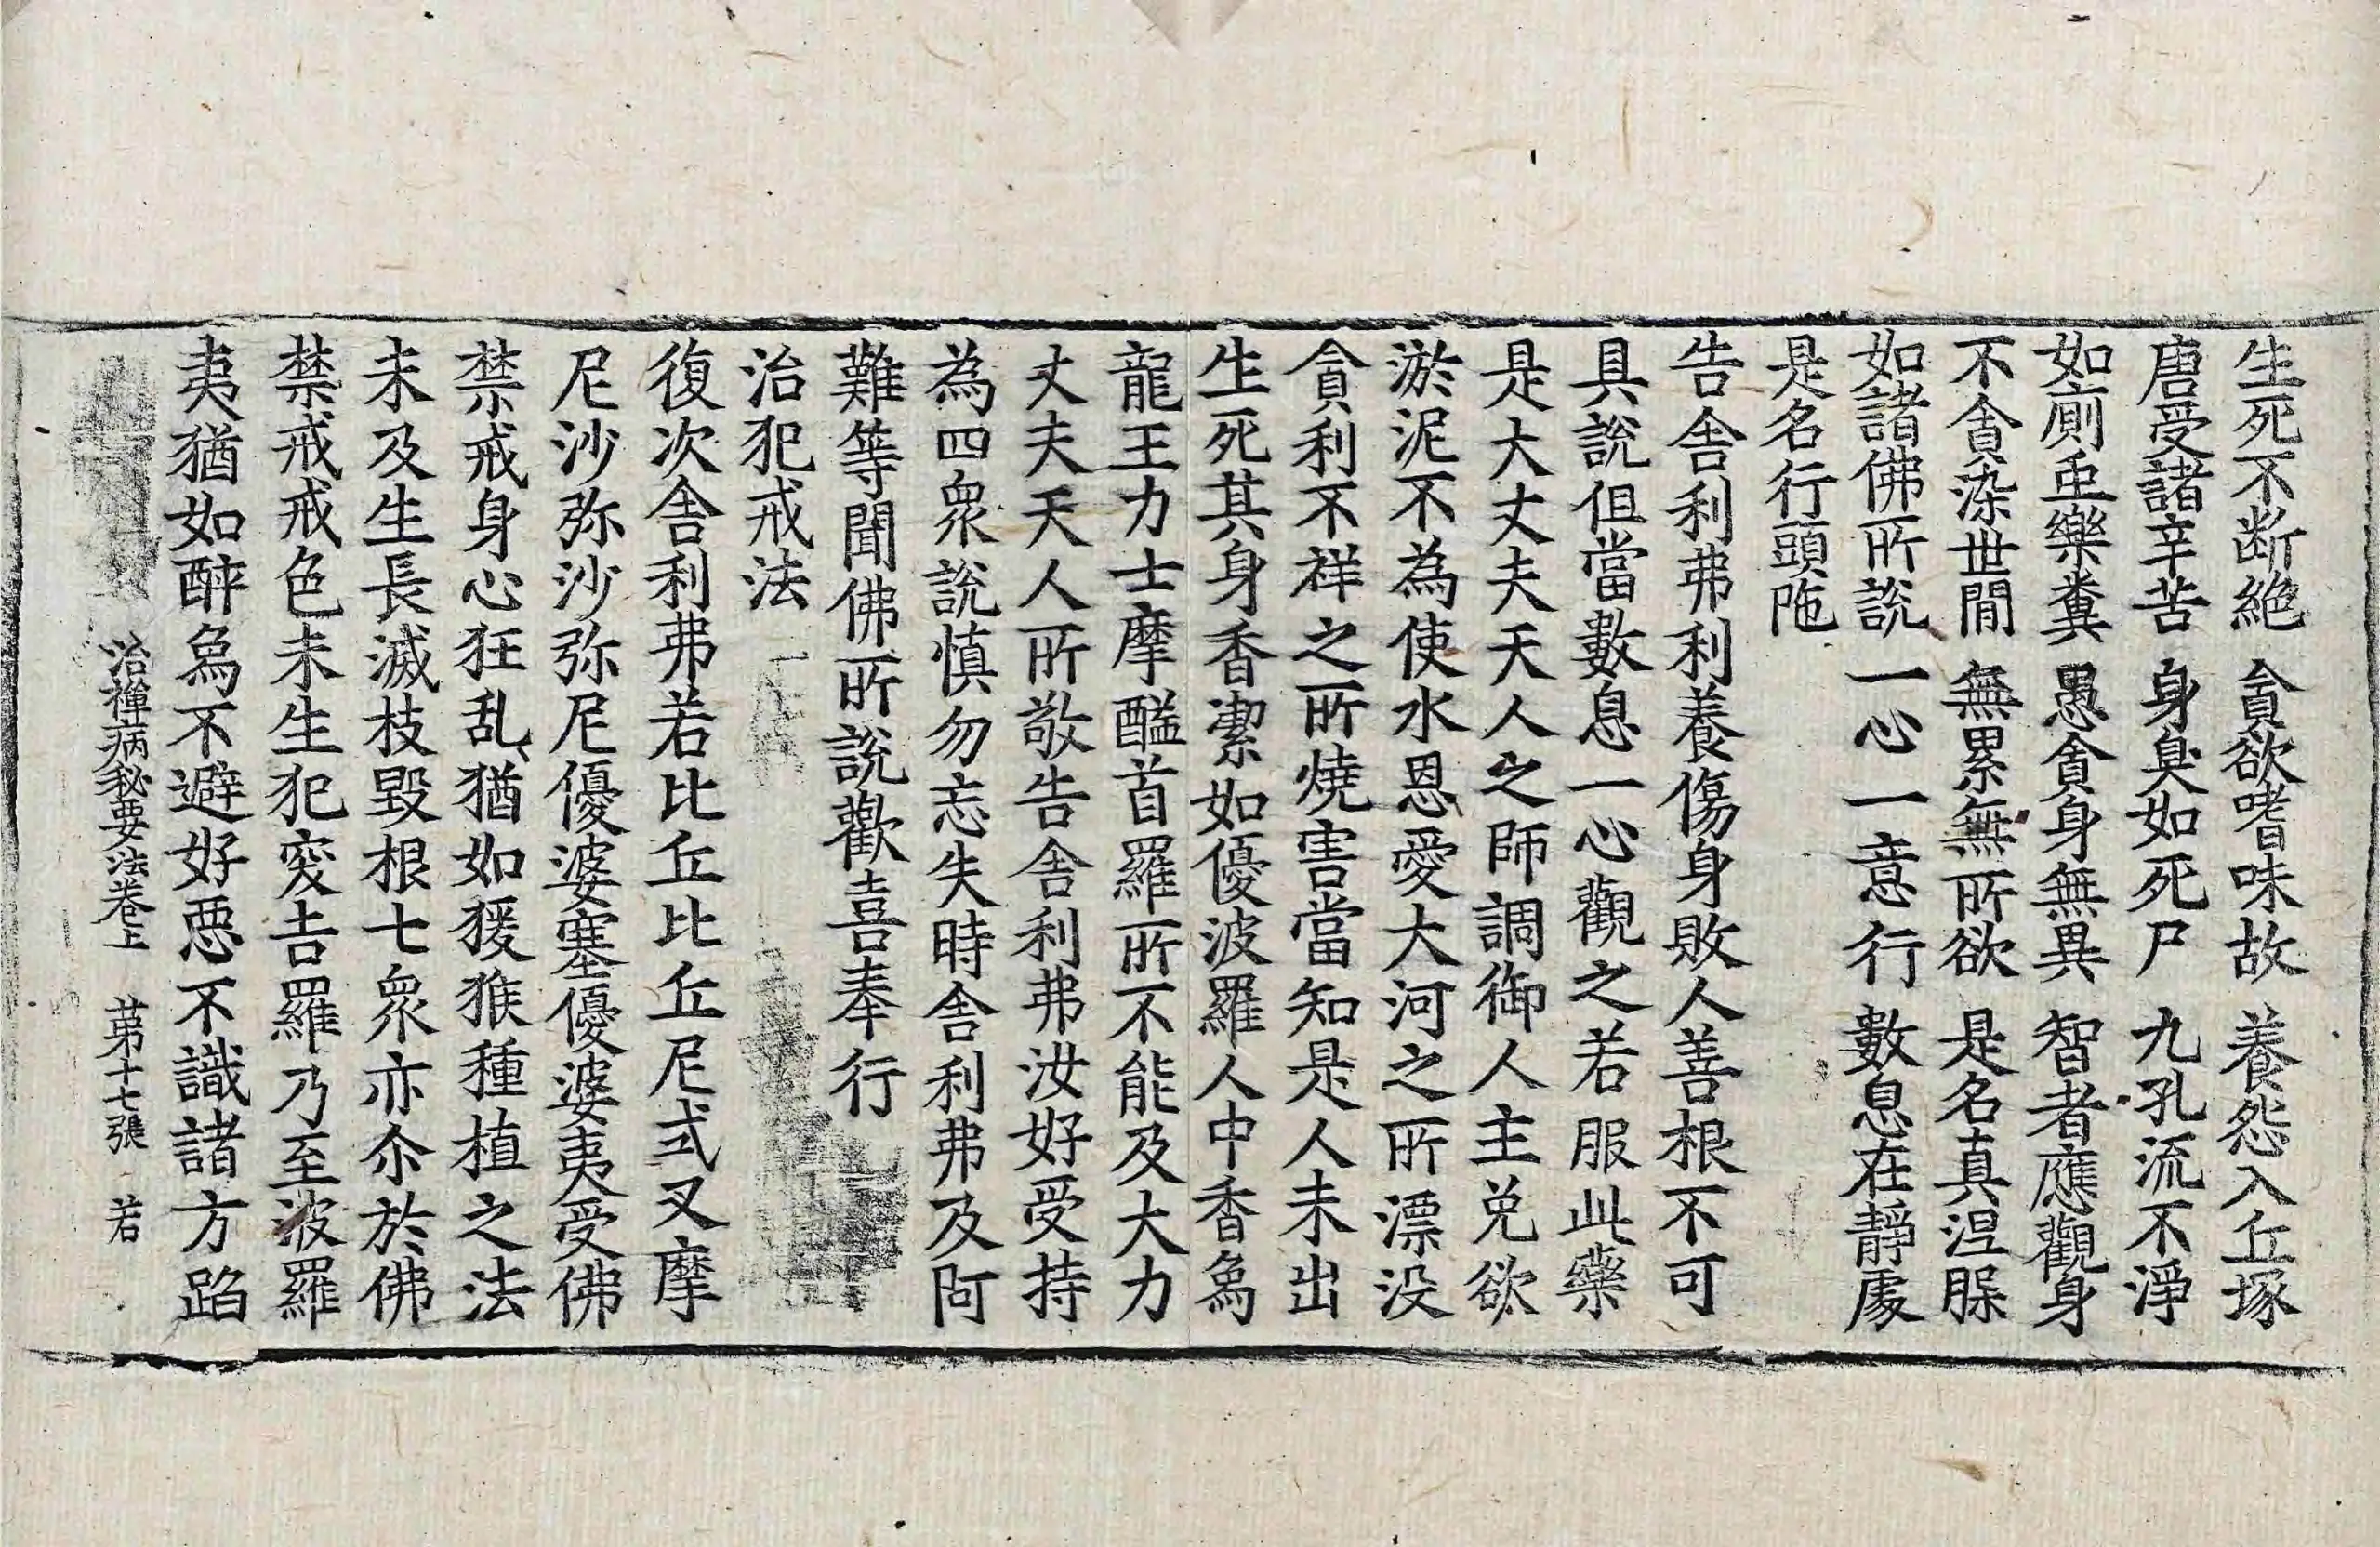 生死不断絶　貪欲嗜味故　養怨入丘塚
唐受諸辛苦　身臭如死尸　九孔流不淨
如廁虫樂糞　愚貪身無異　智者應觀身
不貪染世間　無累無所欲　是名真涅脲
如諸佛所説　一心一意行　數息在靜䖏
是名行頭陁
告舎利弗利養傷身敗人善根不可
具説但當數息一心觀之若服此藥
是大丈夫天人之師調御人主免欲
淤泥不為使水恩愛大河之所漂没
貪利不祥之所燒害當知是人未出
生死其身香潔如優波羅人中香烏
龍王力士摩醯首羅所不能及大力
丈夫天人所敬告舎利弗汝好受持
為四衆説慎勿忘失時舎利弗及阿
難等聞佛所説歡喜奉行
治犯戒法
復次舎利弗若比丘比丘尼式叉摩
尼沙弥沙弥尼優婆塞優婆夷受佛
禁戒身心狂乱猶如猨猴種植之法
未及生長滅枝毀根七衆亦尒於佛
禁戒戒色未生犯突吉羅乃至波羅
夷猶如醉烏不避好惡不識諸方蹈
治禪病秘要法卷上　苐十七張　若